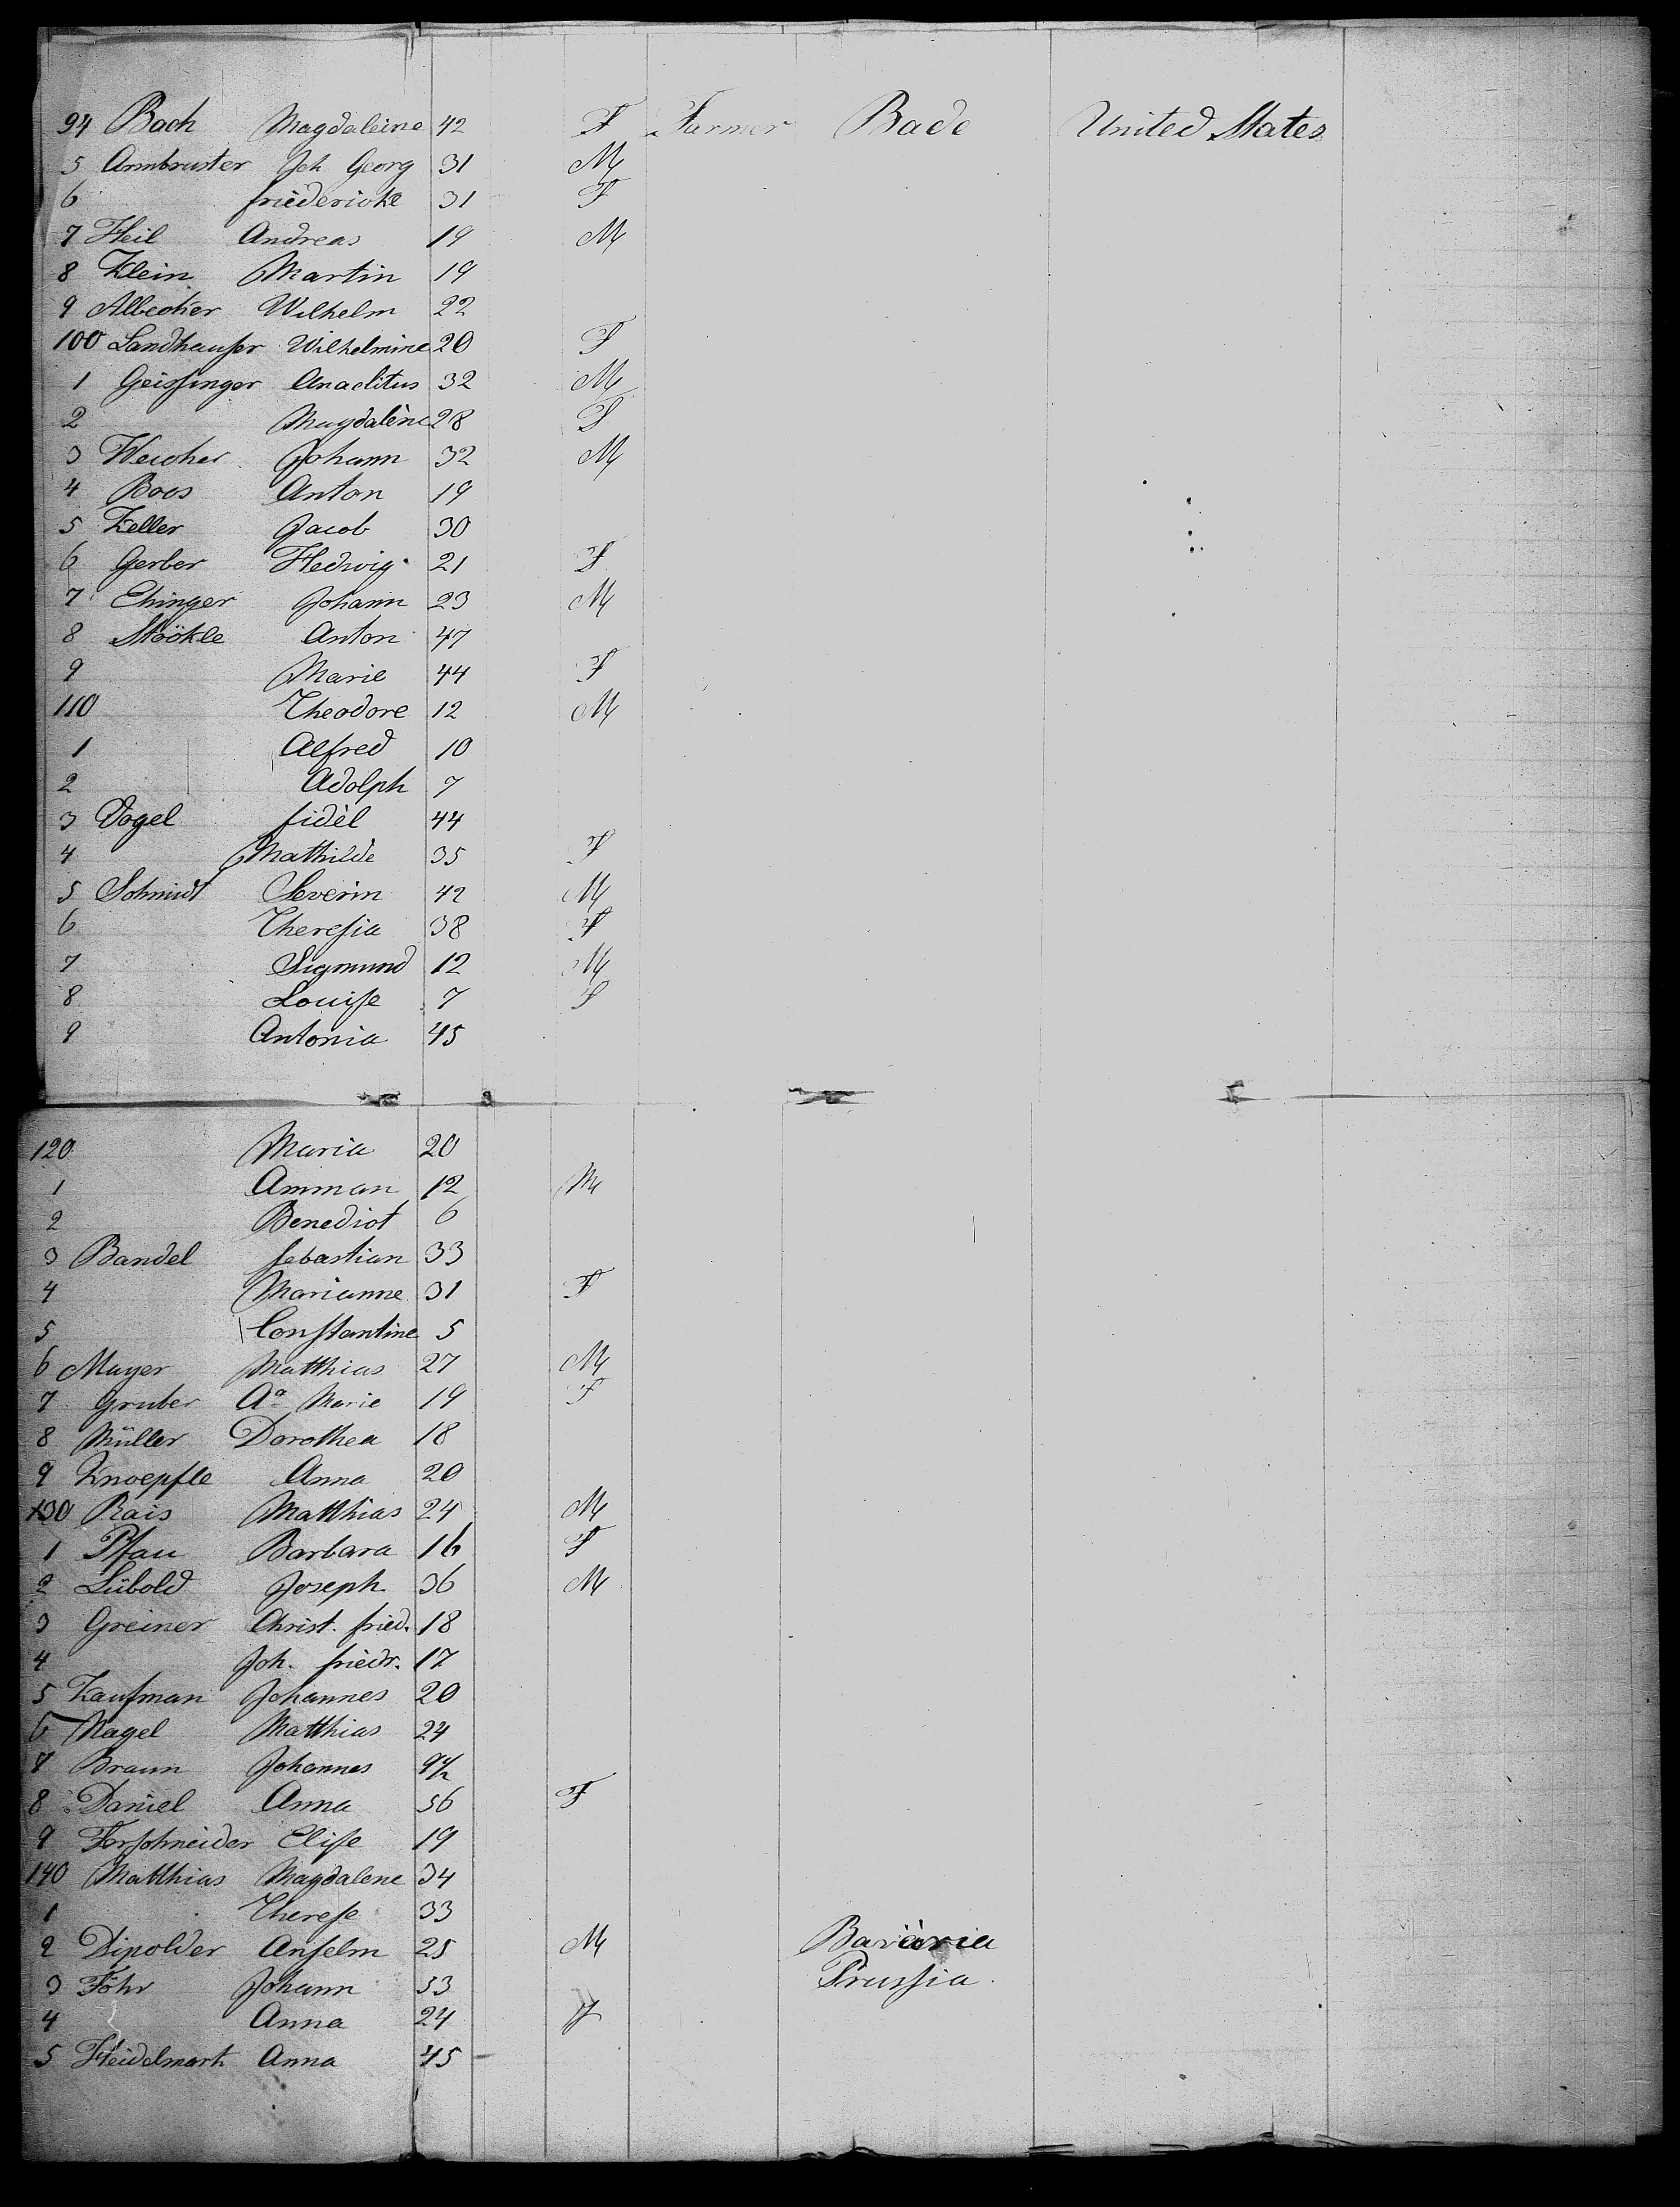 94 Bach Magdaleine 42 F Farmer Bade United States
5 Armbruster Joh Georg 31 M
6 friedericke 31 F
7 Heil Andreas 19 M
8 Klein Martin 19
9 Albecker Wilhelm 22
100 Landhauser Wilhelmine 20 F
1 Geissinger Anaclitus 32 M
2 Magdalène 28 F
3 Weicher Johann 32 M
4 Boos Anton 19
5 Keller Jacob 30
6 Gerber Hedwig 21 F
7 Ehinger Johann 23 M
8 Stöckle Anton 47
9 Marie 44 F
110 Theodore 12 M
1 Alfred 10
2 Adolph 7
3 Vogel fidèl 44
4 Mathilde 35 F
5 Schmidt Severin 42 M
6 Theresia 38 F
7 Sigmund 12 M
8 Louise 7 F
9 Antonia 45
120 Maria 20
1 Amman 12 M
2 Benedict 6
3 Bandel Sebastian 33
4 Marianne 31 F
5 Constantine 5
6 Mayer Matthias 27 M
7 Gruber Aª Marie 19 F
8 Müller Dorothea 18
9 Knoepfle Anna 20
130 Rais Matthias 24 M
1 Pfau Barbara 16 F
2 Lübold Joseph 36 M
3 Greiner Christ. fried. 18
4 Joh. friedr. 17
5 Kaufman Johannes 20
6 Nagel Matthias 24
7 Braun Johannes 9½
8 Daniel Anna 56 F
9 Forschneider Elise 19
140 Matthias Magdalene 34
1 Therese 33
2 Dipolder Anselm 25 M Bavaria
3 Föhr Johann 53 Prussia
4 Anna 24 F
5 Heidelmark Anna 45